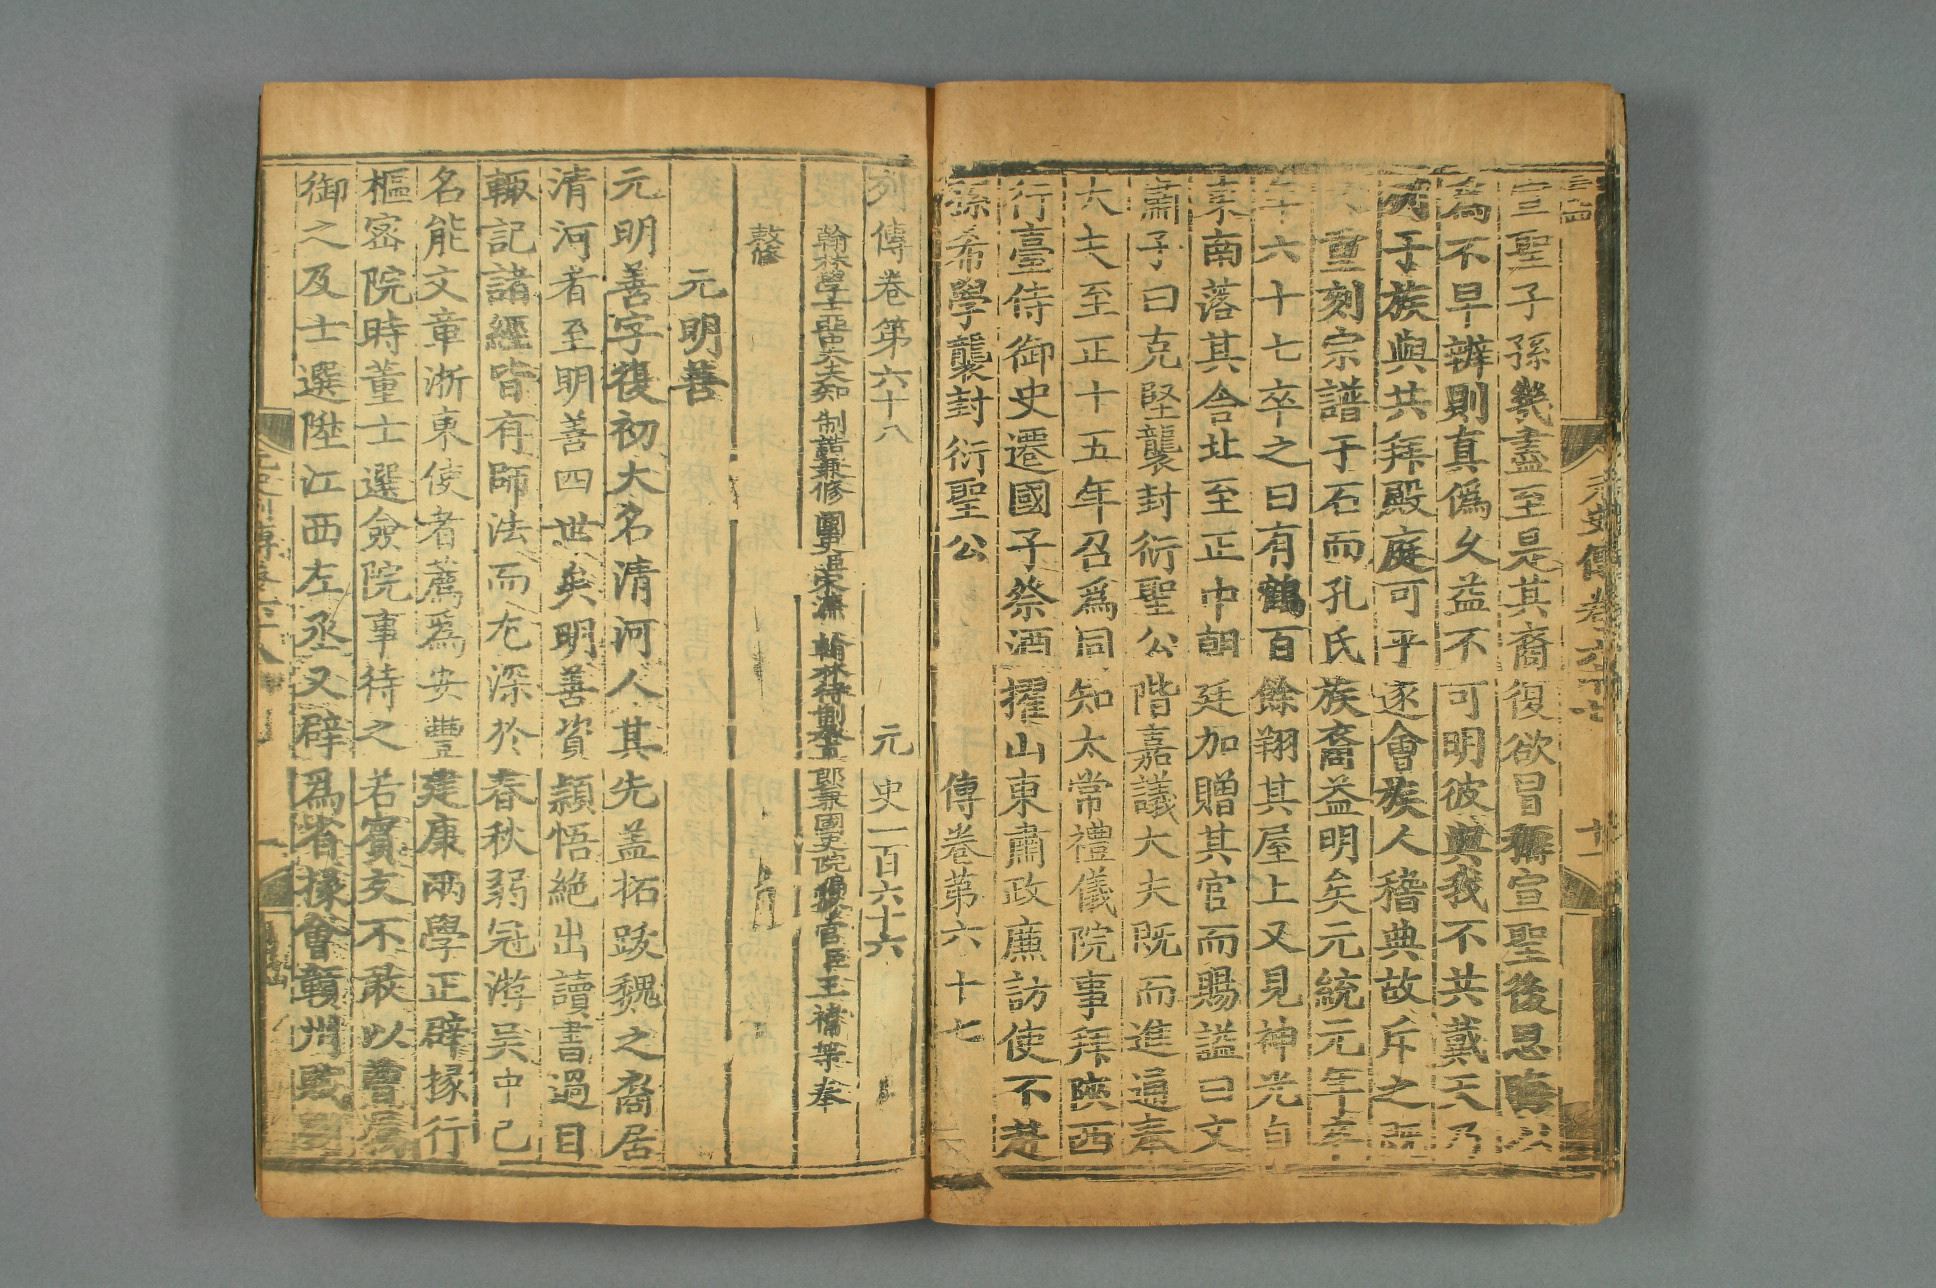 宣聖子孫幾盡至是其裔復欲冒稱宣聖後思晦以
為不早辨則真偽久益不可明彼與我不共戴天乃
列于族與共拜殿庭可乎遂會族人稽典故斥之既
又重刻宗譜于石而孔氏族裔益明矣元統元年卒
年六十七卒之日有鶴百餘翔其屋上又見神光自
東南落其舍北至正中朝廷加贈其官而賜諡曰文
肅子曰克堅襲封衍聖公階嘉議大夫既而進通奉
大夫至正十五年召爲同知太常禮儀院事拜陝西
行臺侍御史遷國子祭酒擢山東肅政廉訪使不赴
孫希學襲封衍聖公
傳卷第六十七
列傳卷第六十八 元史一百六十六
翰林學士亞中大夫知制誥兼修國史臣宋濂 翰林待制承直郎兼國史院編修官臣王禕等奉
敕修
元明善
元明善字復初大名清河人其先蓋拓跋魏之裔居
清河者至明善四世矣明善資穎悟絶出讀書過目
輒記諸經皆有師法而尤深於春秋弱冠游吳中已
名能文章浙東使者薦爲安豐建康兩學正辟掾行
樞密院時董士選僉院事待之若賓友不敢以曹屬
御之及士選陞江西左丞又辟爲省掾會贛州賊